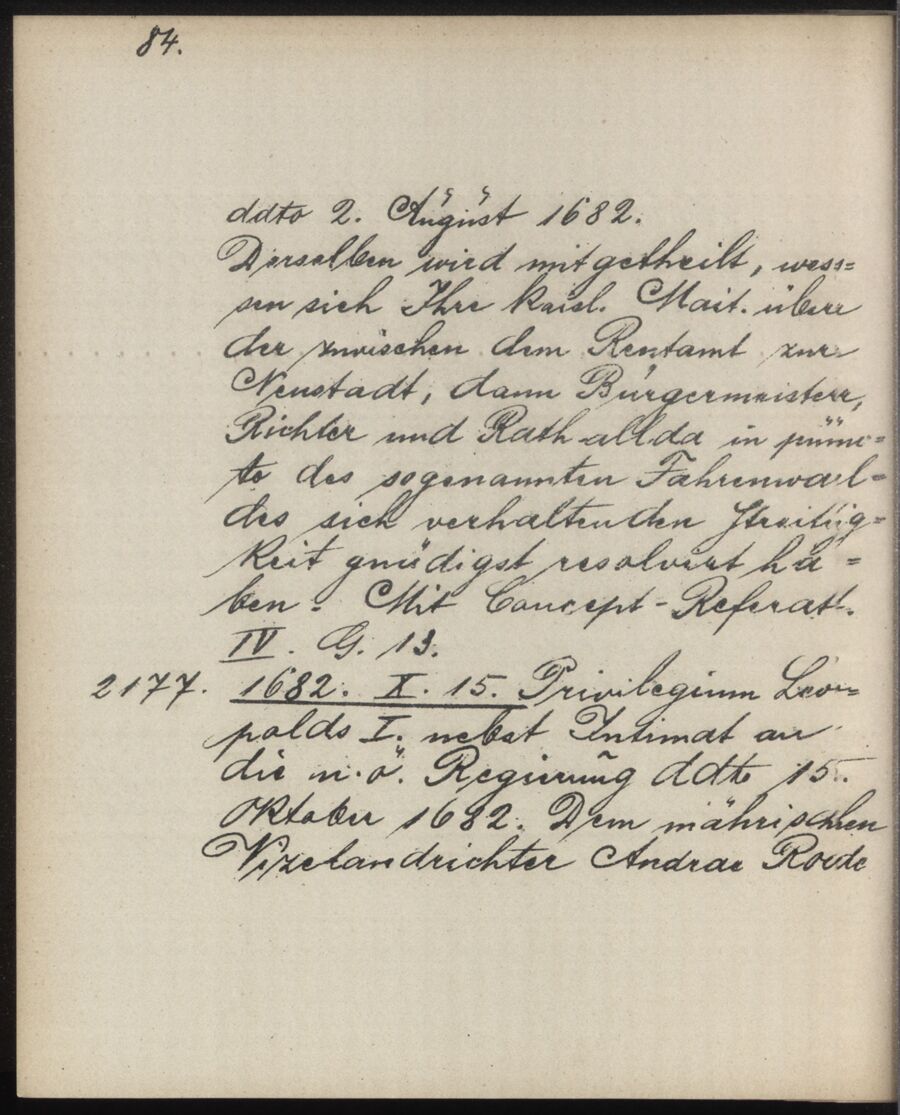 84.
ddto 2. August 1682.
Derselben wird mitgetheilt, wess=
sen sich Ihre kaisl. Mait. über
der zwischen dem Rentamt zur
Neustadt, dann Bürgermeister,
Richter und Rath allda in punc=
to des sogenannten Fahrenwal=
des sich verhaltenden Streitig=
keit gnädigst resolvirt ha=
ben. Mit Concept-Referat.
IV. G. 13.
2177. 1682. X. 15. Privilegium Leo=
polds I. nebst Intimat an
die n. ö. Regierung ddto 15.
Oktober 1682. Dem mährischen
Vizelandrichter Andrae